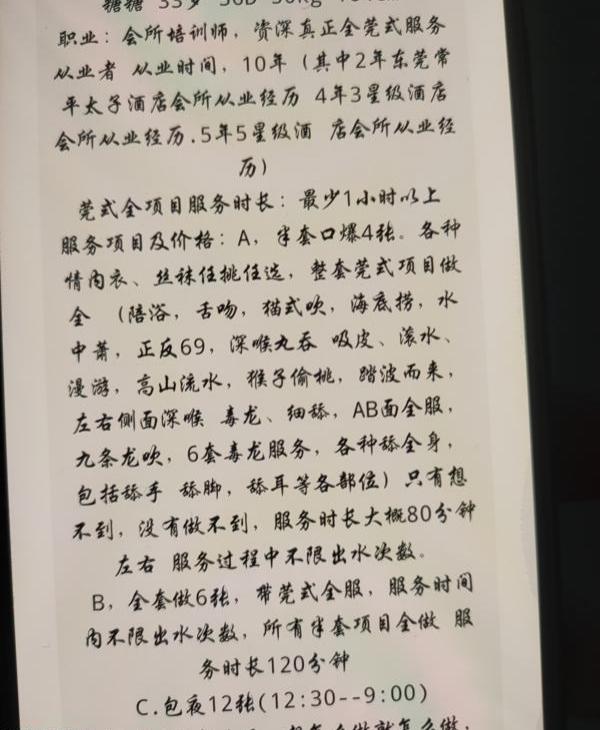 糖糖 33岁 36D 50kg
职业：会所培训师，资深真正全莞式服务
从业者 从业时间，10年（其中2年东莞常
平太子酒店会所从业经历 4年3星级酒店
会所从业经历.5年5星级酒 店会所从业经
历）
莞式全项目服务时长：最少1小时以上
服务项目及价格：A，半套口爆4张。各种
情内衣、丝袜任挑任选，整套莞式项目做
全 （陪浴，舌吻，猫式吹，海底捞，水
中萧，正反69，深喉丸吞 吸皮、滚水、
漫游，高山流水，猴子偷桃，踏波而来，
左右侧面深喉 毒龙、细舔，AB面全服，
九条龙吹，6套毒龙服务，各种舔全身，
包括舔手 舔脚，舔耳等各部位）只有想
不到，没有做不到，服务时长大概80分钟
左右 服务过程中不限出水次数。
B，全套做6张，带莞式全服，服务时间
内不限出水次数，所有半套项目全做 服
务时长120分钟
C.包夜12张(12:30--9:00)